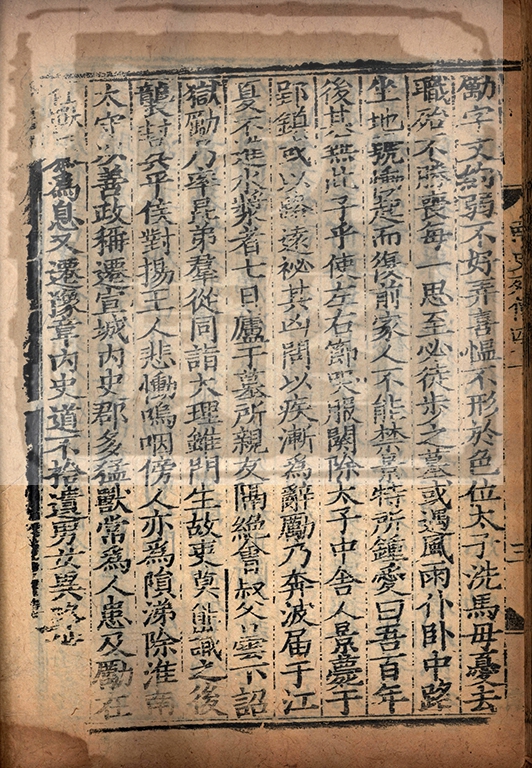 南史列傳四十一
三
勱字文約弱不好弄喜慍不形於色位太子洗馬母憂去
職殆不勝喪每一思至必徒步之墓或遇風雨仆卧中路
坐地號慟起而復前家人不能禁景特所鍾愛曰吾百年
後其無此子乎使左右節哭服闋除太子中舍人景薨于
郢鎮或以路遠祕其凶問以疾漸爲辭勵乃奔波届于江
夏不進水漿者七日廬于墓所親友隔絶會叔父曇下詔
獄勵乃率昆弟羣從同詣大理雖門生故吏莫能識之後
襲封吳平侯對揚王人悲慟嗚咽傍人亦爲隕涕除淮南
太守以善政稱遷宣城内史郡多猛獸常爲人患及勵在
任獸爲息又遷豫章内史道不拾遺男女異路